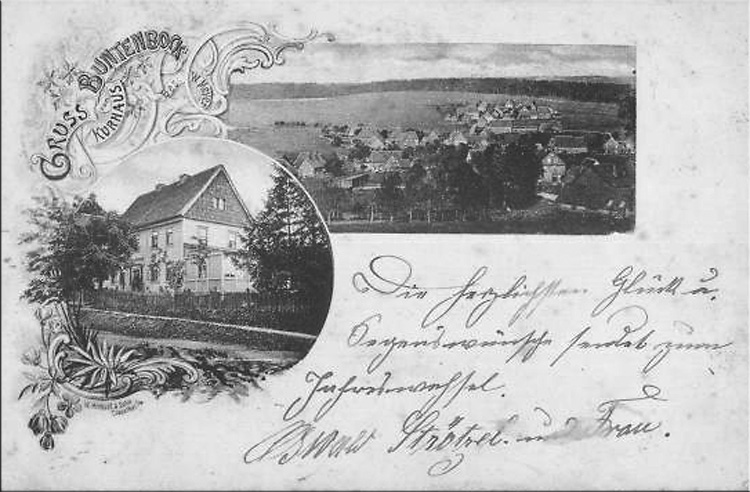 GRUSS BUNTENBOCK
KURHAUS
Die herzlichsten Glück u.
Segenswünsche sendet zum
Jahreswechsel.
Oswald Strötzel. und Frau.